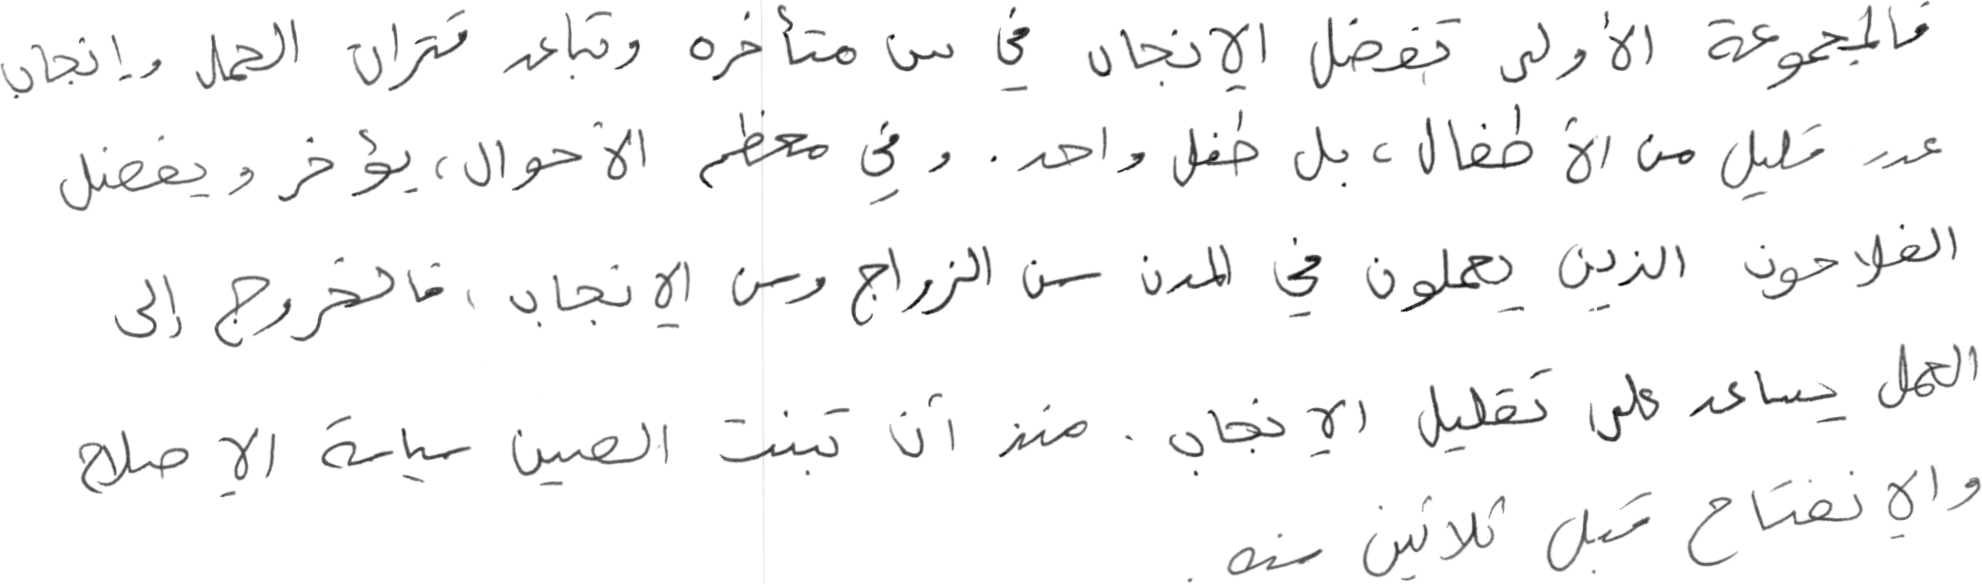 فالمجموعة الأولى تفضل الإنجاب في سن متأخره وتباعد فتران الحمل وإنجاب
عدد قليل من الأطفال، بل طفل واحد. وفي معظم الأحوال، يؤخر ويفضل
الفلاحون الذين يعملون في المدن سن الزواج وسن الإنجاب، فالخروج إلى
العمل يساعد على تقليل الإنجاب. منذ أن تبنت الصين سياسة الإصلاح
والإنفتاح قبل ثلاثين سنه.